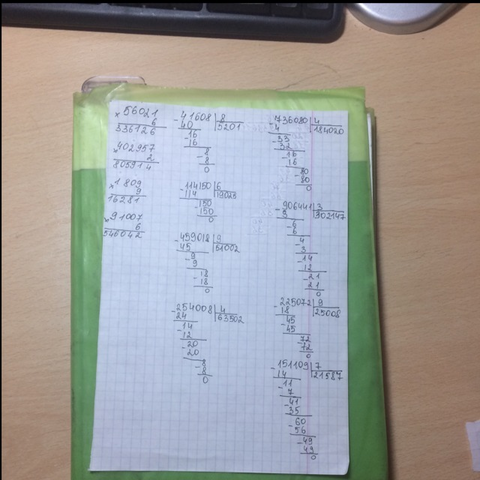 × 56021
6
336126
× 402957
2
805914
× 1809
9
16281
× 91007
6
546042
- 41608 | 8
40 | 5201
- 16
16
- 8
8
0
- 114150 | 6
114 | 19025
- 150
150
0
- 459018 | 9
45 | 51002
- 9
9
- 18
18
0
- 254008 | 4
24 | 63502
- 14
12
- 20
20
- 8
8
0
- 736080 | 4
4 | 184020
- 33
32
- 16
16
- 80
80
0
- 906441 | 3
3 | 302147
- 6
6
- 4
3
- 14
12
- 21
21
0
- 225072 | 9
18 | 25008
- 45
45
- 72
72
0
- 151109 | 7
14 | 21587
- 11
7
- 41
35
- 60
56
- 49
49
0